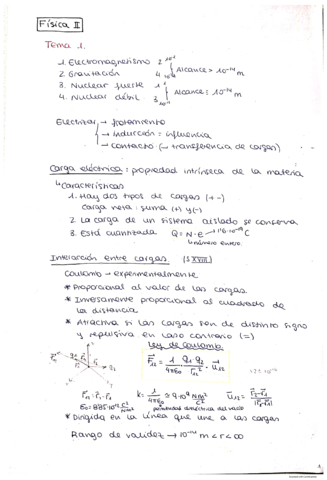 Física II
Tema 1.
1. Electromagnetismo 2
2. Gravitación 4
Alcance > 10⁻¹⁴ m
3. Nuclear fuerte 1
4. Nuclear débil 3
Alcance = 10⁻¹⁴ m
Electrizar → frotamiento
→ Inducción = influencia
→ contacto (→ transferencia de cargas)
Carga eléctrica : propiedad intrínseca de la materia
↳ Características
1. Hay dos tipos de cargas (+ -)
Carga neta : suma (+) y (-)
2. La carga de un sistema aislado se conserva
3. Está cuantizada Q = N·e → 1'6·10⁻¹⁹ C
↳ número entero
Interacción entre cargas (S XVIII)
Coulomb → experimentalmente
* Proporcional al valor de las cargas.
* Inversamente proporcional al cuadrado de
la distancia
* Atractiva si las cargas son de distinto signo
y repulsiva en caso contrario (=)
Ley de Coulomb
F₁₂ = 1/4πε₀ · q₁·q₂/r₁₂² · u₁₂
k = 1/4πε₀ ≈ 9·10⁹ Nm²/C²
ε₀ = 8'85·10⁻¹² C²/Nm²
permitividad dieléctrica del vacío
* Dirigida en la línea que une a las cargas
Rango de validez → 10⁻¹⁴ m < r < ∞